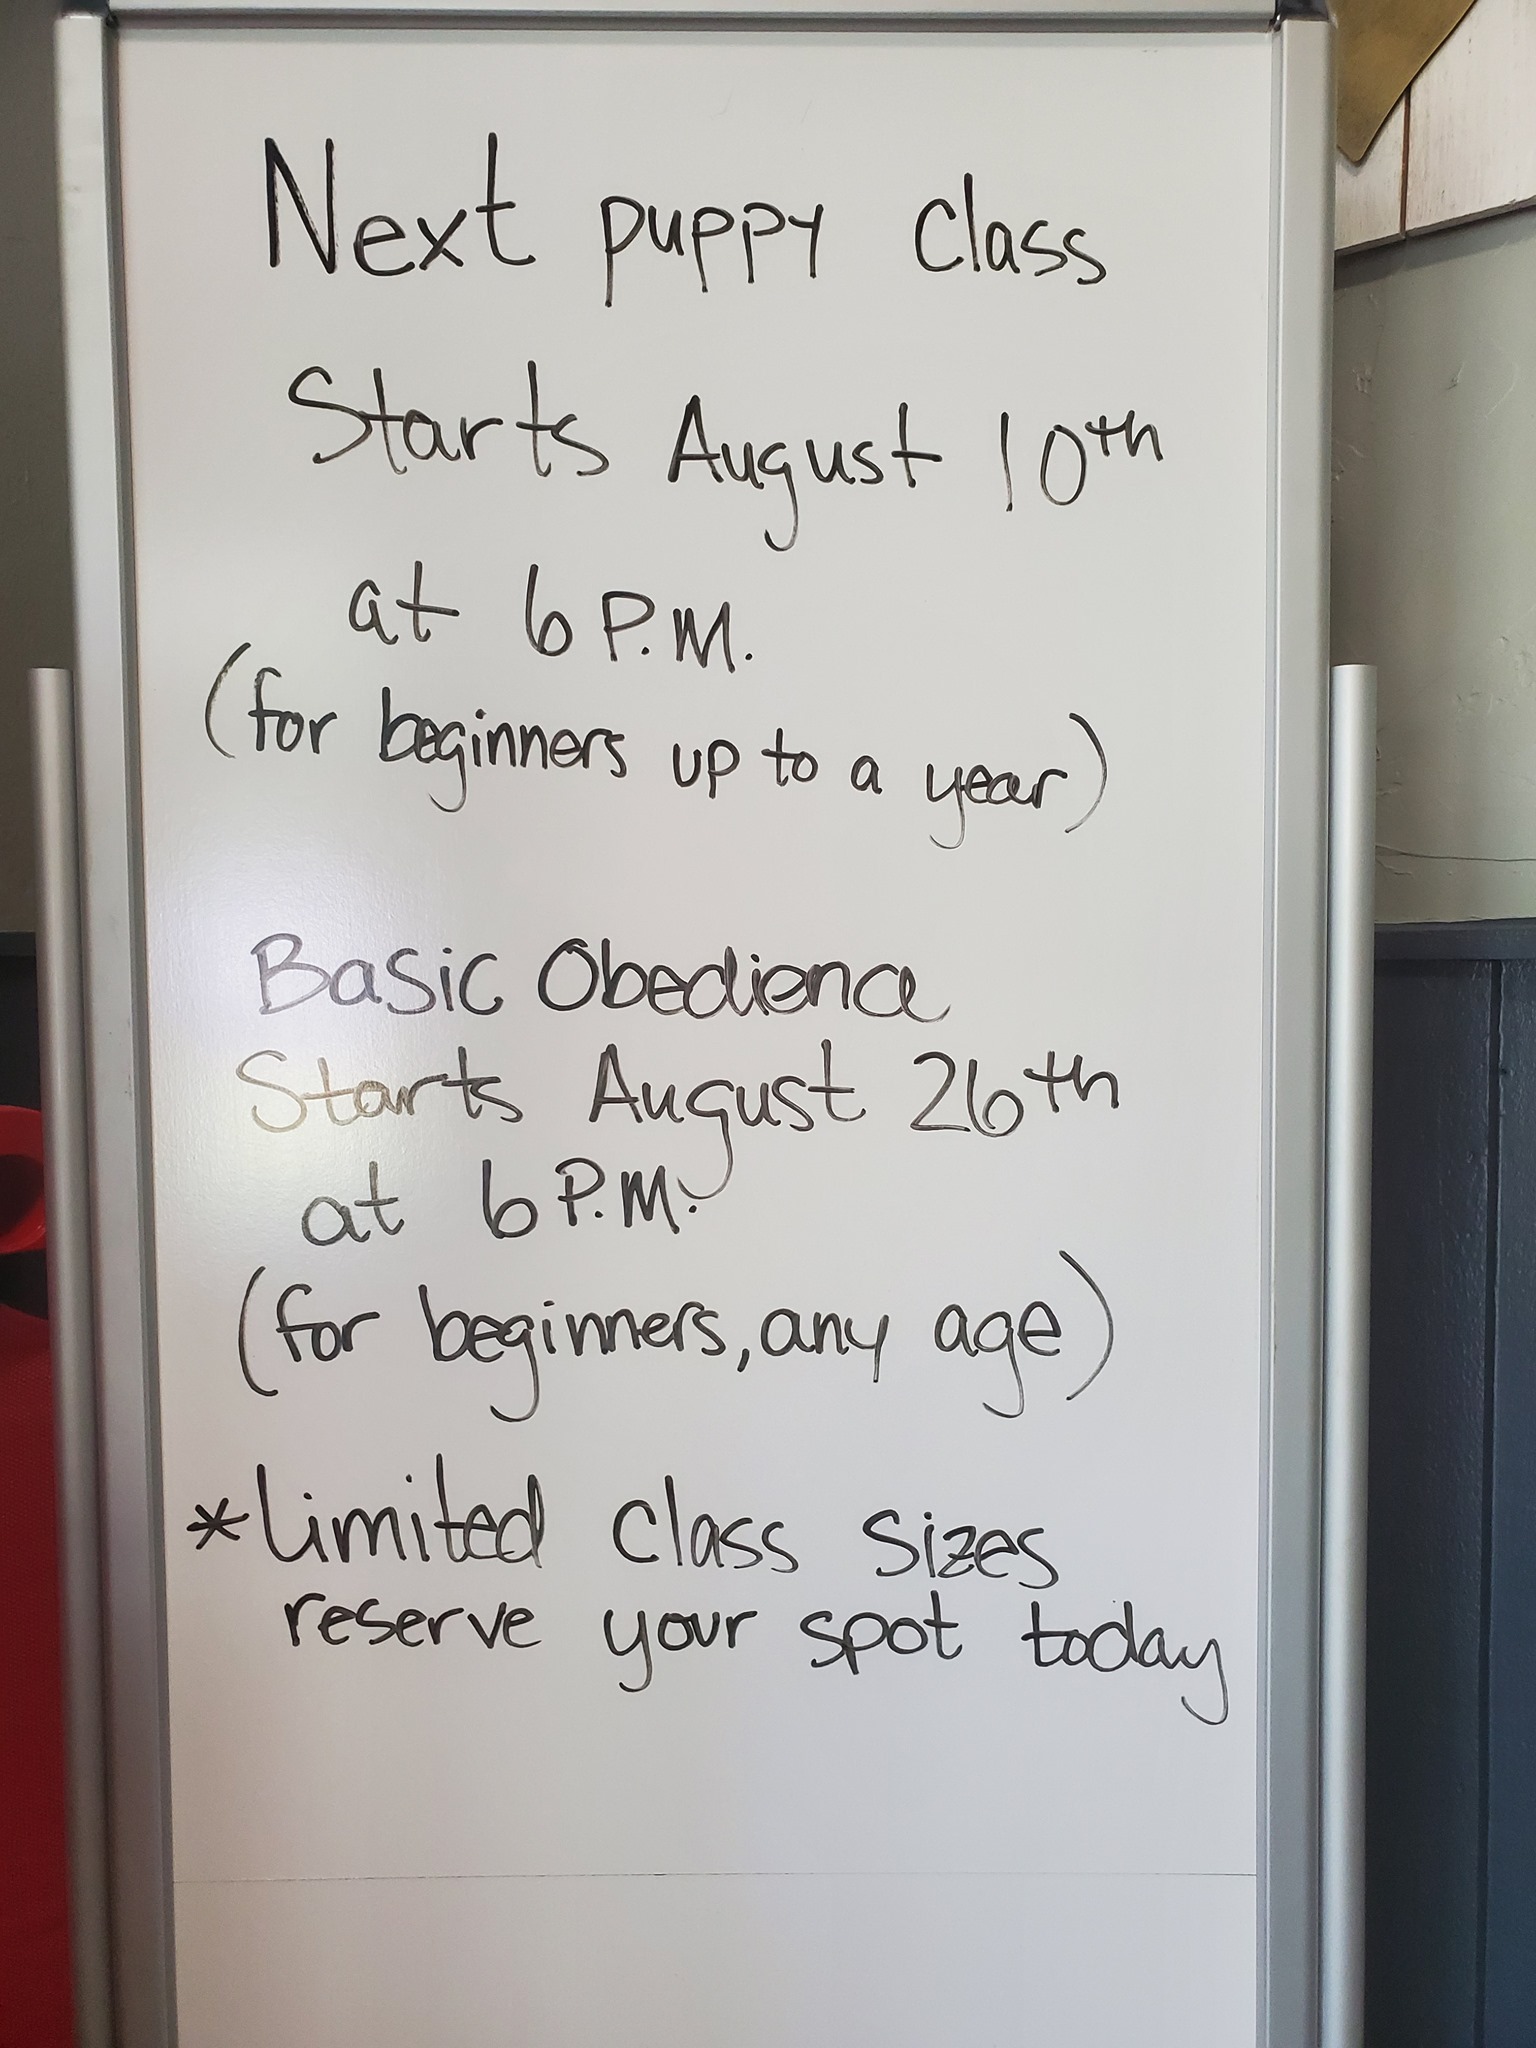 Next puppy class
Starts August 10th
at 6 P.M.
(for beginners up to a year)
Basic Obedience
Starts August 26th
at 6 P.M.
(for beginners, any age)
*Limited class sizes
reserve your spot today